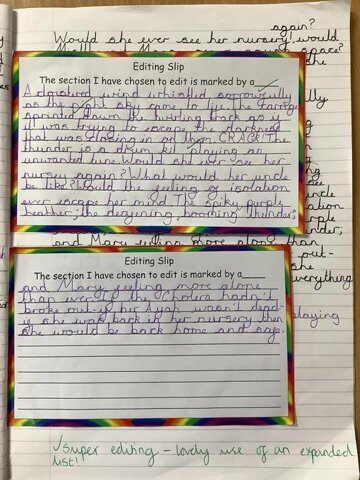 again?
Would she ever see her nursery? would
Editing Slip
The section I have chosen to edit is marked by a ✓
A cloistered wind whistled sorrowfully
as the night sky came to life. The carriage
sprinted down the hurtling track as if
it was trying to escape the darkness
that was closing in on them. CRACK! The
thunder is a drum kit playing an
unwanted tune. Would she ever see her
nursery again? What would her uncle
be like? Would the feeling of isolation
ever escape her mind. The spiky purple
heather; the deafening, booming thunder;
and Mary feeling more alone than
Editing Slip
The section I have chosen to edit is marked by a____
and Mary feeling more alone
than ever. If the Cholera hadn't
broke out - if her Ayah wasn't dead -
if she was back in her nursery then
she would be back home and safe.
everything
playing
✓super editing - lovely use of an expanded
list!